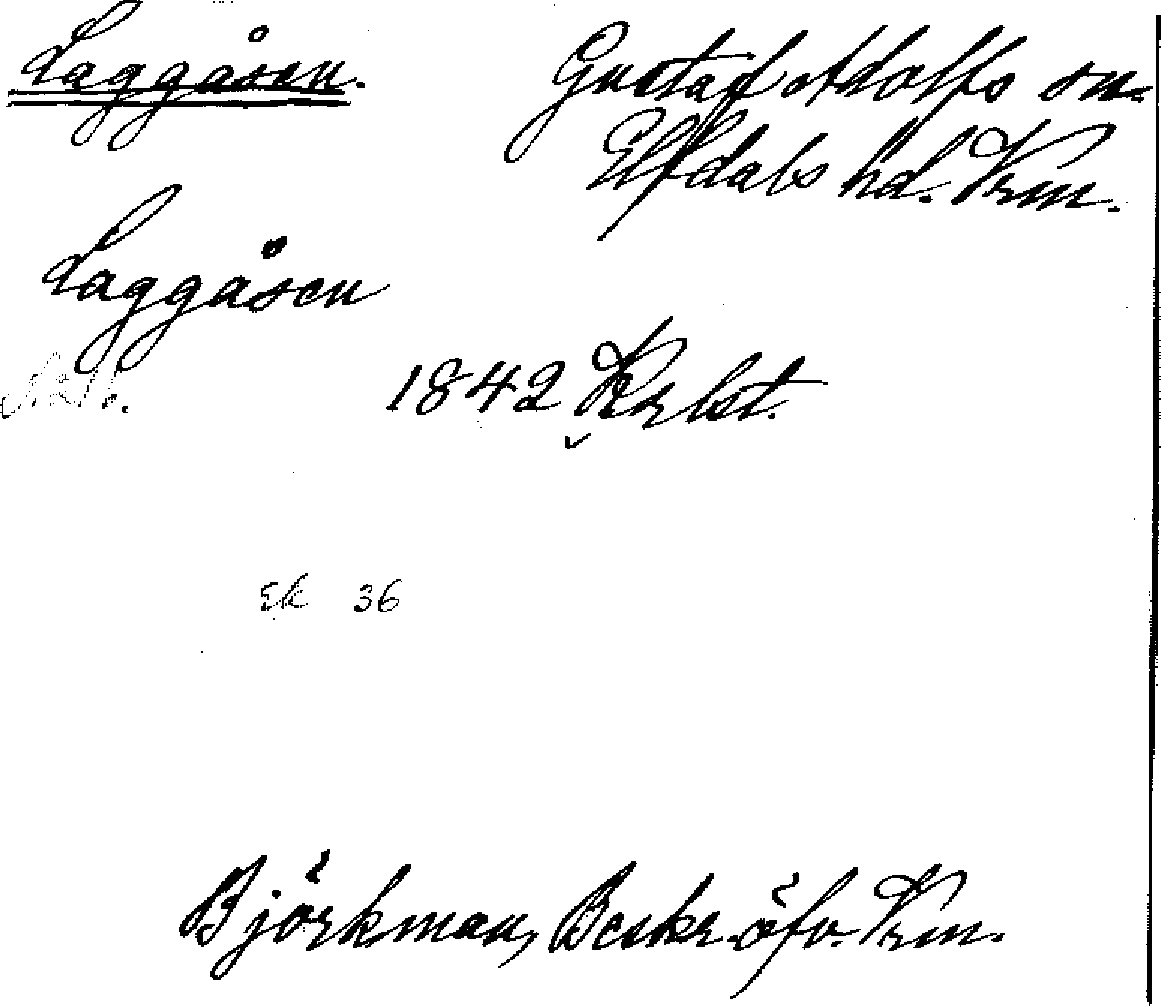 Laggåsen.
Gustaf Adolfs sn.
Elfdals hd. Vrm.
Laggåsen
1842 Krbst.
Ek 36
Björkman, Beskr. öfv. Vrm.